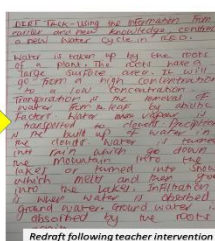 DIRT Task - Using the information from
earlier and new knowledge, construct
a new water cycle in RED.
Water is taken up by the roots
of a plant. The roots have a
large surface area. It will
go from a high concentration
to a low concentration.
Transpiration is the removal of
water from a leaf by abiotic
factors. Water is
transported to clouds. Precipitation
is the build up of water in
the clouds. Water is turned
into rain which go down
the mountain into the
lakes or turned into snow
which melt and run
into the lakes. Infiltration
is were water is absorbed
ground water. Ground water is
absorbed by the roots
Redraft following teacher intervention